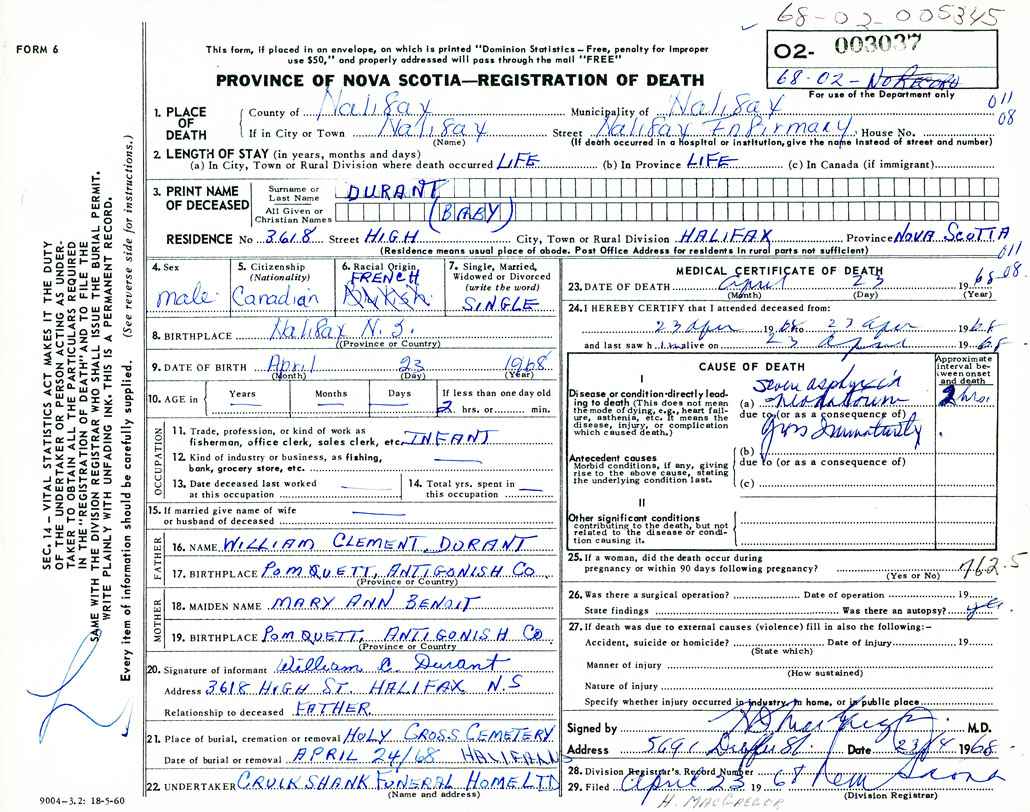 68-02-005345
FORM 6
This form, if placed in an envelope, on which is printed "Dominion Statistics—Free, penalty for improper
use $50," and properly addressed will pass through the mail "FREE"
02- 003037
68-02-No Record
For use of the Department only
PROVINCE OF NOVA SCOTIA—REGISTRATION OF DEATH
011
08
1. PLACE OF DEATH
County of Halifax Municipality of Halifax
If in City or Town Halifax Street Halifax Infirmary House No.
(Name) (If death occurred in a hospital or institution, give the name instead of street and number)
2. LENGTH OF STAY (in years, months and days)
(a) In City, Town or Rural Division where death occurred LIFE (b) In Province LIFE (c) In Canada (if immigrant)
3. PRINT NAME OF DECEASED
Surname or Last Name DURANT
All Given or Christian Names (BABY)
RESIDENCE No 3618 Street HIGH City, Town or Rural Division HALIFAX Province NOVA SCOTIA
(Residence means usual place of abode. Post Office Address for residents in rural parts not sufficient)
011
08
4. Sex
male
5. Citizenship
(Nationality)
Canadian
6. Racial Origin
FRENCH
7. Single, Married,
Widowed or Divorced
(write the word)
SINGLE
8. BIRTHPLACE Halifax N.S.
(Province or Country)
9. DATE OF BIRTH April 23 1968
(Month) (Day) (Year)
10. AGE in
Years
Months
Days
If less than one day old
2 hrs. or min.
OCCUPATION
11. Trade, profession, or kind of work as
fisherman, office clerk, sales clerk, etc. INFANT
12. Kind of industry or business, as fishing,
bank, grocery store, etc.
13. Date deceased last worked
at this occupation
14. Total yrs. spent in
this occupation
15. If married give name of wife
or husband of deceased
FATHER
16. NAME WILLIAM CLEMENT DURANT
17. BIRTHPLACE POMQUETT, ANTIGONISH CO.
(Province or Country)
MOTHER
18. MAIDEN NAME MARY ANN BENOIT
19. BIRTHPLACE POMQUETT, ANTIGONISH CO.
(Province or Country
20. Signature of informant William C. Durant
Address 3618 HIGH ST. HALIFAX N.S
Relationship to deceased FATHER
21. Place of burial, cremation or removal HOLY CROSS CEMETERY
Date of burial or removal APRIL 24/68 HALIFAX NS
22. UNDERTAKER CRUIKSHANK FUNERAL HOME LTD
(Name and address)
MEDICAL CERTIFICATE OF DEATH
23. DATE OF DEATH April 23 1968
(Month) (Day) (Year)
24. I HEREBY CERTIFY that I attended deceased from:
23 Apr 1968 to 23 Apr 1968
and last saw him alive on 23 April 1968
CAUSE OF DEATH
Approximate
interval be-
tween onset
and death
I
Disease or condition directly lead-
ing to death (This does not mean
the mode of dying, e.g., heart fail-
ure, asthenia, etc. It means the
disease, injury, or complication
which caused death.)
(a) Severe asphyxia
neonatorum
2 hrs.
due to (or as a consequence of)
Gross Immaturity
Antecedent causes
Morbid conditions, if any, giving
rise to the above cause, stating
the underlying condition last.
(b)
due to (or as a consequence of)
(c)
II
Other significant conditions
contributing to the death, but not
related to the disease or condi-
tion causing it.
25. If a woman, did the death occur during
pregnancy or within 90 days following pregnancy?
(Yes or No)
762.5
26. Was there a surgical operation? Date of operation 19
State findings Was there an autopsy? yes
27. If death was due to external causes (violence) fill in also the following:—
Accident, suicide or homicide? Date of injury 19
(State which)
Manner of injury
(How sustained)
Nature of injury
Specify whether injury occurred in industry, in home, or in public place
Signed by M.D.
Address 5691 St. Date 23/4 1968
28. Division Registrar's Record Number
29. Filed April 23 1968
(Division Registrar)
H. MACGREGOR
SEC. 14 — VITAL STATISTICS ACT MAKES IT THE DUTY
OF THE UNDERTAKER OR PERSON ACTING AS UNDER-
TAKER TO OBTAIN ALL THE PARTICULARS REQUIRED
IN THE "REGISTRATION OF DEATH" AND TO FILE THE
SAME WITH THE DIVISION REGISTRAR WHO SHALL ISSUE THE BURIAL PERMIT.
WRITE PLAINLY WITH UNFADING INK. THIS IS A PERMANENT RECORD.
Every item of information should be carefully supplied. (See reverse side for instructions.)
9004—3.2: 18-5-60